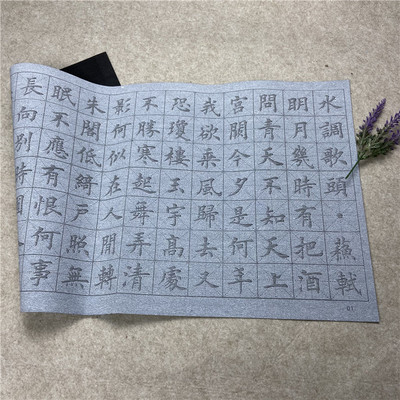 水調歌頭。蘇軾
明月幾時有把酒
問青天不知天上
宮闕今夕是何年
我欲乘風歸去又
恐瓊樓玉宇高處
不勝寒起舞弄清
影何似在人間轉
朱閣低綺戶照無
眠不應有恨何事
長向別時
01